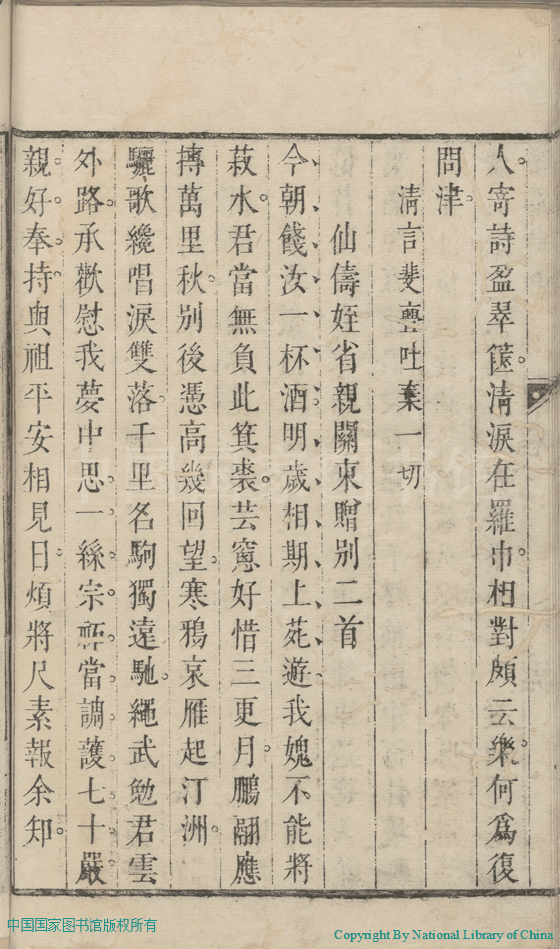 人寄詩盈翠篋清淚在羅巾相對頗云樂何爲復
問津
清言斐亹吐棄一切
仙儔姪省親關東贈別二首
今朝餞汝一杯酒明歲相期上苑遊我媿不能將
菽水君當無負此箕裘芸窻好惜三更月鵬翮應
摶萬里秋別後憑高幾回望寒鴉哀雁起汀洲
驪歌纔唱淚雙落千里名駒獨遠馳繩武勉君雲
外路承歡慰我夢中思一絲宗祏當調護七十嚴
親好奉持與祖平安相見日煩將尺素報余知
中国国家图书馆版权所有
Copyright By National Library of China